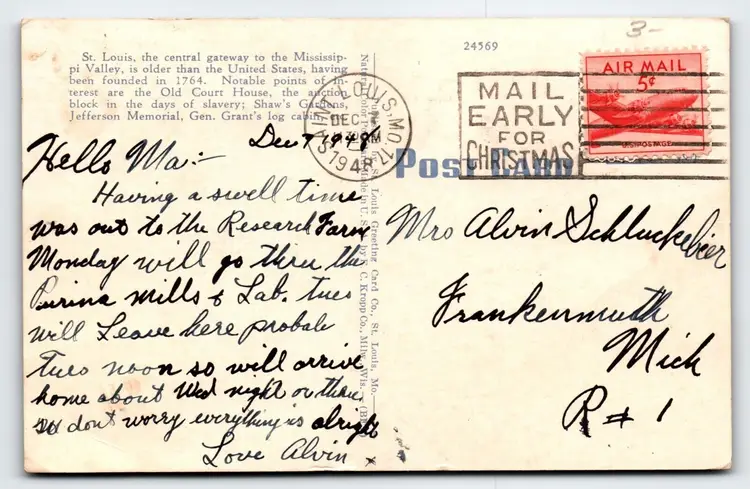 St. Louis, the central gateway to the Mississip-
pi Valley, is older than the United States, having
been founded in 1764. Notable points of in-
terest are the Old Court House, the auction
block in the days of slavery; Shaw's Gardens,
Jefferson Memorial, Gen. Grant's log cabin
Dec 7 1948
Hello Ma:-
Having a swell time
was out to the Research Farm
Monday will go thru the
Purina Mills & Lab. tues
will Leave here probale
Tues noon so will arrive
home about Wed night or thur
so dont worry everything is alright
Love Alvin
St. Louis Greeting Card Co., St. Louis, Mo.
Made in U. S. A. by E. C. Kropp Co., Milw., Wis.
24569
3-
ST. LOUIS, MO. 17
DEC
1948
MAIL
EARLY
FOR
CHRISTMAS
AIR MAIL
5¢
U.S. POSTAGE
POST CARD
Mrs Alvin Schluckebier
Frankenmuth
Mich
R # 1